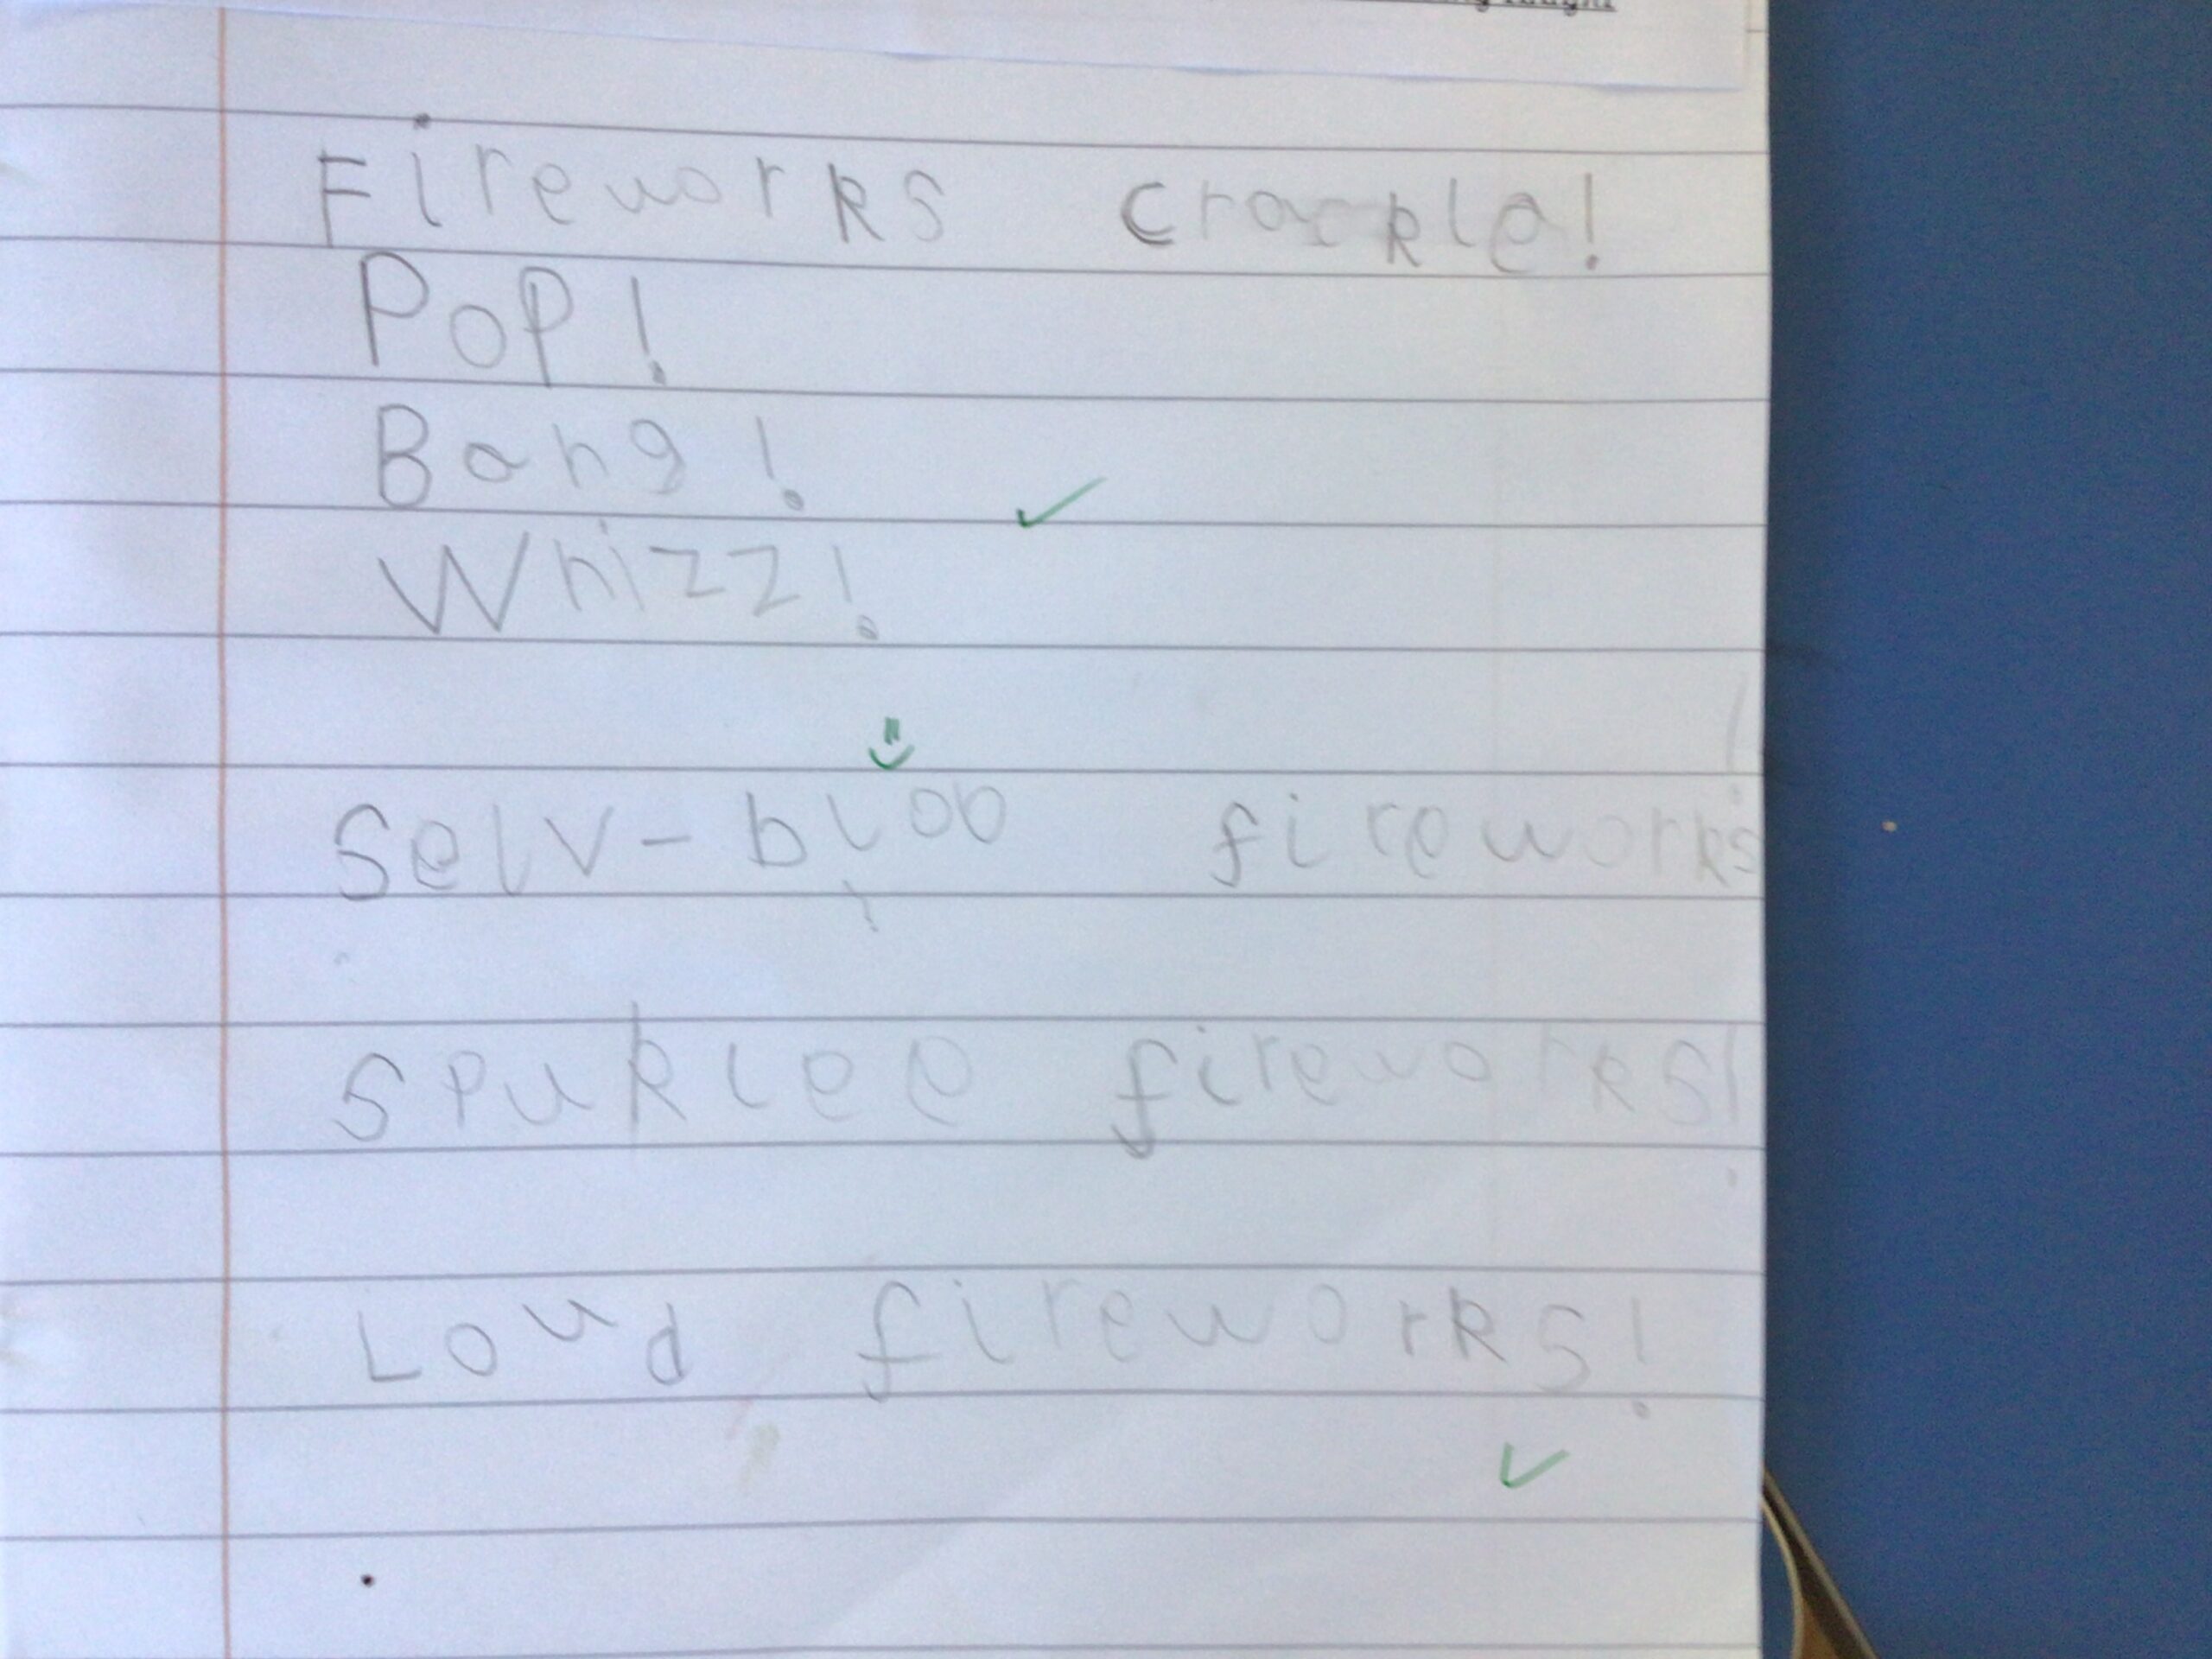 Fireworks crackle!
Pop!
Bang!
Whizz!
Selv-bloo fireworks!
Spuklee fireworks!
Loud fireworks!